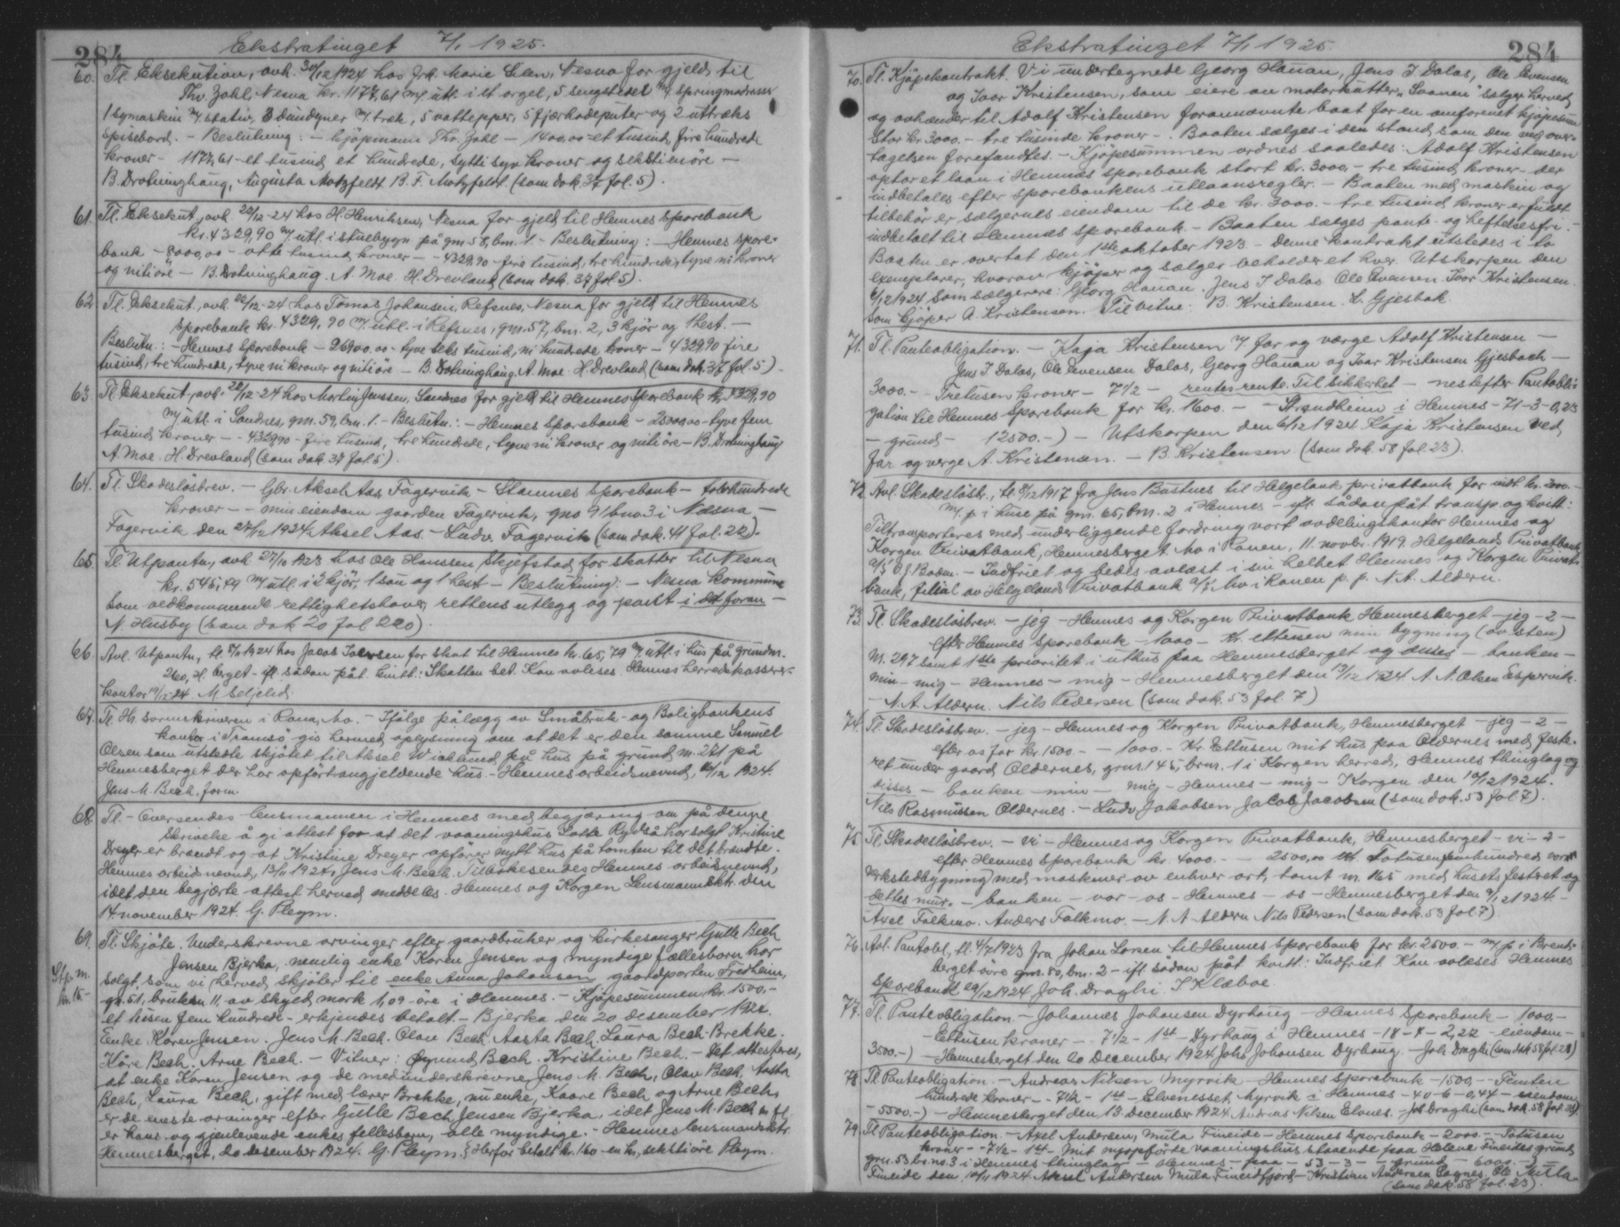 284 Ekstratinget 7/1 1925.
60. Tl. Eksekution, avh. 30/12 1924 hos Frk. Marie Elen, Nesna for gjeld til
Thv. Zahl, Nesna kr. 1177,61 m/ utl. i et orgel, 5 sengsteder m/ springmadrasser
1 symaskin m/ stativ, 3 dundyner m/ træk, 5 vattepper, 5 fjærhodeputer og 2 uttræks
spisebord. - Beslutning: - kjøpmann Thv. Zahl - 1400,00 et tusind fire hundrede
kroner - 1177,61 et tusind et hundrede, sytti syv kroner og sekstien øre -
B. Drotninghaug, Augusta Motzfeldt B. F. Motzfeldt. (som dok. 37 fol. 5).
61. Tl. Eksekut, avh 22/12-24 hos H. Henriksen, Nesna for gjeld til Hemnes Sporebank
kr. 4329,90 m/ utl. i stuebygn på gm 58, bm. 1. - Beslutning: - Hemnes Spore-
bank - 8000,00 - otte tusind kroner - 4329.90 fire tusind, tre hundrede, tyve ni kroner
og nitiøre - B. Drotninghaug A. Moe. H. Drevland (som dok. 37 fol. 5).
62. Tl. Eksekut, avh 22/12-24 hos Tomas Johansen, Refsnes, Nesna for gjeld til Hemnes
Sporebank kr. 4329,90 m/ utl. i Refsnes, gm. 57, bm. 2, 3 kjør og 1 hest. -
Beslutn.: - Hemnes Sporebank - 26900.00 - tyve seks tusind, ni hundrede kroner - 4329,90 fire
tusind, tre hundrede, tyve ni kroner og nitiøre - B. Drotninghaug. A. Moe. H. Drevland (som dok 37 fol. 5).
63. Tl. Eksekut, avh. 22/12-24 hos Morten Jenssen, Sandnes for gjeld til Hemnes Sporebank kr. 4329,90
m/ utl i Sandnes, gm. 59, bm. 1. - Beslutn.: - Hemnes Sporebank - 25000.00 tyve fem
tusind kroner - 4329.90 - fire tusind, tre hundrede, tyve ni kroner og nitiøre - B. Drotninghaug
A. Moe. H. Drevland (som dok. 37 fol 5).
64. Tl. Skadesløsbrev. - Gbr. Aksel Aas Fagervik - Stamnes Sporebank -
kroner - - min eiendom gaarden Fagervik, gno 91 bno 3 i Nesna -
Fagervik den 27/12 1924. Aksel Aas - Ludv. Fagervik (som dok. 41 fol. 22).
65. Tl. Utpantn, avh 27/10 1923 hos Ole Hanssen, Skjefstad for skatter til Nesna
kr. 545,49 m/ utl i 2 kjør, 1 sau og 1 hest - Beslutning: - Nesna kommune
som vedkommende rettighetshaver rettens utlegg og pant i det foran -
N. Husby (som dok 20 fol 220).
66. Avl. Utpantn, tl. 5/11 1924 hos Jacob Iversen for skat til Hemnes kr. 65,79 m/ utl. i hus på grundn.
260, H. berget - ifl. sådan påt. kvitt.: Skatten bet. Kan avleses. Hemnes herredskasserer-
kontor 19/12 24. M Seljelid.
67. Tl. Hr. sorenskriveren i Rana, Mo. - Ifølge pålægg av Småbruk- og Boligbankens
kontor i Tromsø gis herved oplysning om at det er den samme Samuel
Olsen som utstedte skjøtet til Aksel Wicklund på hus på grund nr. 281 på
Hemnesberget der har opført angjeldende hus - Hemnes arbeidsnevnd, 1924.
Jens M. Bech. form.
68. Tl. - Oversendes lensmannen i Hemnes med begjæring om på denne
skrivelse å gi attest for at det vaaningshus Lotte Rydså har solgt Kristine
Dreyer er brændt og at Kristine Dreyer opfører nytt hus på tomten til det brændte.
Hemnes arbeidsnevnd, 13/11 1924, Jens M. Bech. Tilbakesendes Hemnes arbeidsnevnd,
idet den begjærte attest herved meddeles. Hemnes og Korgen Lensmannsktr. den
14 november 1924. G. Pleym.
69. Tl. Skjøte. Underskrevne arvinger efter gaardbruker og kirkesanger Gutte Bech
Jensen Bjerka, nemlig enke Karen Jensen og myndige fællesbarn har
solgt, som vi herved skjøter til enke Anna Johansen gaardparten Fredheim,
gr. 51, bruksn 11, av skyld mark 1,09 øre i Hemnes. - Kjøpesummen kr. 1500,-
et tusen fem hundrede - erkjendes betalt. - Bjerka den 20 desember 1924.
Enke Karen Jensen. Jens M. Bech. Olav Bech Aasta Bech Laura Bech-Brekke.
Kåre Bech. Arne Bech. - Vitner: Øymund Bech. Kristine Bech. - Det attesteres,
at enke Karen Jensen og de medunderskrevne Jens M. Bech, Olav Bech, Aasta
Bech, Laura Bech, gift med lærer Brekke, nu enke, Kaare Bech og Arne Bech
er de eneste arvinger efter Gutte Bech Jensen Bjerka, idet Jens M. Bech m. fl.
er hans og gjenlevende enkes fellesbarn, alle myndige. - Hemnes lensmannsktr
Hemnesberget, 20 desember 1924. G. Pleym. Herfor betalt kr. 1.60 en kr, sekstiøre Pleym.
Ekstratinget 7/1 1925. 284
70. Tl. Kjøpekontrakt. Vi undertegnede Georg Hanan, Jens J Dalas, Ole Evensen
og Ivar Kristensen, som eiere av motorkutter "Svanen" sælger herved
og avhænder til Adolf Kristensen forannævnte baat for en omforenet kjøpesum
Stor kr. 3000.- tre tusinde kroner - . Baaten sælges i den stand som den ved over-
tagelsen forefandtes. - Kjøpesummen ordnes saaledes: Adolf Kristensen
optar et laan i Hemnes Sporebank stort kr. 3000,- tre tusind kroner - der
indbetales efter Sporebankens utlaansregler. - Baaten med maskin og
tilbehør er sælgernes eiendom til de kr. 3000.- tre tusind kroner er fuldt
indbetalt til Hemnes Sporebank - Baaten sælges pante- og heftelsesfri. -
Baaten er overtat den 1ste oktober 1923 - Denne kontrakt utstedes i to
exemplarer, hvorav kjøper og sælger beholder et hver. Utskarpen den
6/12 1924 Som sælgerere: Georg Hanan. Jens J Dalas Ole Evensen Ivar Kristensen.
Som kjøper A. Kristensen. Til vitne: B. Kristensen. L. Gjesbak
71. Tl. Panteobligation. - Kaja Kristensen m/ far og værge Adolf Kristensen -
Jens J Dalas, Ole Evensen Dalas, Georg Hanan og Ivar Kristensen Gjesbach -
3000.- Tretusen kroner - 7½ - rentersrente. Til sikkerhet - nestefter Pantobli-
gation til Hemnes Sporebank for kr. 1600.- - Strandheim i Hemnes - 71-3-0,23
- grund - 12500.-) - Utskarpen den 6/12 1924 Kaja Kristensen ved
far og verge A. Kristensen. - B. Kristensen (som dok. 58 fol. 23).
72. Avl. Skadesløsbr., tl. 8/12 1917 fra Jens Bastnes til Helgeland privatbank for indt kr. 2000.-
m/ p. i huse på gm. 65, bm. 2 i Hemnes - ifl. sådan påt transp og kvitt:
Tiltransporteres med underliggende fordring vort avdelingskontor Hemnes og
Korgen Privatbank, Hemnesberget Mo i Ranen, 11. novbr. 1919. Helgelands Privatbank
A/S O J Boden. - Indfriet og bedes avlæst i sin helhet Hemnes og Korgen Privat-
bank, filial av Helgelands Privatbank A/S, Mo i Ranen p. p. N. A. Aldern.
73. Tl. Skadesløsbrev. - jeg - Hemnes og Korgen Privatbank Hemnesberget - jeg - 2 -
efter Hemnes Sporebank - 1000 - Kr. ettusen min bygning (av sten)
nr. 297 samt 1ste prioritet i uthus paa Hemnesberget og disses - banken -
min - mig - Hemnes - mig - Hemnesberget den 17/12 1924 A. N. Olsen Espervik.
- N. A. Aldern. Nils Pedersen (som dok. 53 fol. 7)
74. Tl. Skadesløsbrev. - jeg - Hemnes og Korgen Privatbank, Hemnesberget - jeg - 2 -
efter os for kr. 1500.- - 1000.- Kr. Ettusen mit hus paa Oldernes med feste-
ret under gaard Oldernes, grns 145, brnr. 1 i Korgen herred, Hemnes thinglag og
disses - banken - min - mig - Hemnes - mig - Korgen den 10/12 1924.
Nils Rasmussen Oldernes. - Ludv. Jakobsen Jacob Jacobsen (som dok. 53 fol 7).
75. Tl. Skadesløsbrev. - vi - Hemnes og Korgen Privatbank, Hemnesberget - vi - 2 -
efter Hemnes Sporebank kr. 4000.- - 2500,00 Totusenfemhundred vore
verkstedbygning med maskiner av enhver art, samt nr 165 med husets festeret og
dettes mur. - banken - vor - os - Hemnes - os - Hemnesberget den 9/12 1924 -
Axel Falkmo. Anders Falkmo. - N. A. Aldern Nils Pedersen (som dok. 53 fol 7)
76. Avl. Pantobl., tl. 4/7 1923 fra Johan Larsen til Hemnes Sporebank for kr. 2500.- m/ p i Brend-
berget øvre gm. 80, bm. 2 - ifl. sådan påt kvitt: Indfriet Kan avleses Hemnes
Sporebank 29/12 1924 Joh. Draghi. I Klæboe.
77. Tl. Panteobligation - Johannes Johansen Dyrhaug - Hemnes Sporebank - 1000.-
- Ettusen kroner - 7½ - 1st - Dyrhaug i Hemnes - 18-4-2,22 - eiendom -
3500.-) - Hemnesberget den 20 December 1924 Johs Johansen Dyrhaug. - Joh Draghi (som dok 58 fol 23)
78. Tl. Panteobligation. - Andreas Nilsen Myrvik - Hemnes Sporebank - 1500.- Femten
hundrede kroner - 7½ - 1st - Elvenesset, Myrvik i Hemnes - 40-6-0,44 - eiendom
- 5500.-) - Hemnesberget den 13. December 1924 Andreas Nilsen Elvnes. - Joh Draghi (som dok. 58 fol 23)
79. Tl. Panteobligation. - Axel Andersen, Mula Fineide - Hemnes Sporebank - 2000.- - Totusen
kroner - 7½ - 1st - mit nyopførte vaaningshus staaende paa Helene Fineides grund
gm. 53 br. no. 3 i Hemnes thinglag - Hemnes - paa - 53-3 - grund - 6000.-) -
Fineide den 1924 Aksel Andersen Mula Fineidfjord - Kristian Andersen Ole Mula
(som dok. 58 fol. 23).